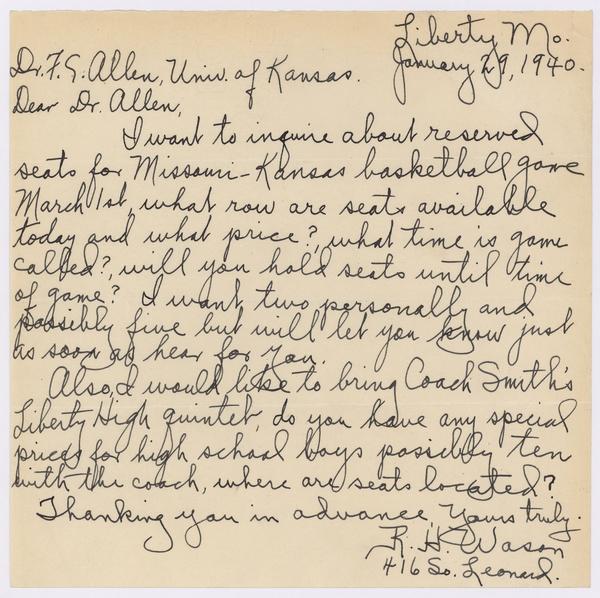 Liberty Mo.
January 29, 1940.
Dr. F. G. Allen, Univ. of Kansas.
Dear Dr. Allen,
I want to inquire about reserved
seats for Missouri-Kansas basketball game
March 1st, what row are seats available
today and what price?, what time is game
called?, will you hold seats until time
of game? I want two personally and
possibly five but will let you know just
as soon as hear for you.
Also, I would like to bring Coach Smith's
Liberty High quintet, do you have any special
prices for high school boys possibly ten
with the coach, where are seats located?
Thanking you in advance, Yours truly.
R. H. Wason
416 So. Leonard.